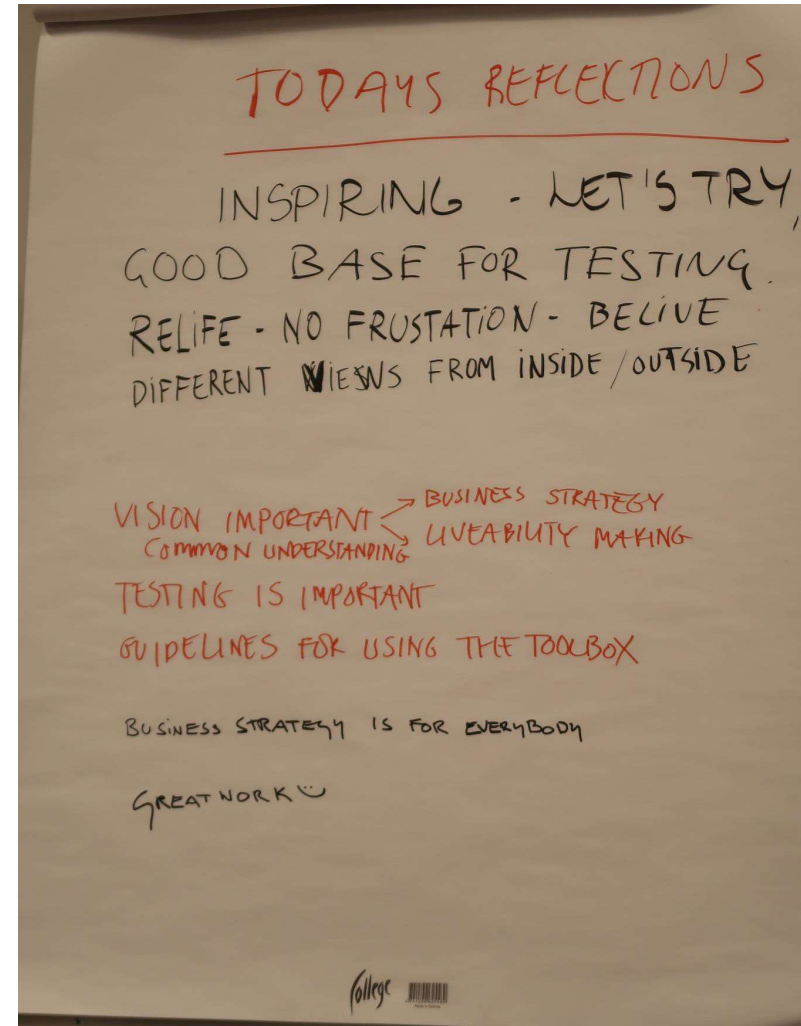 TODAYS REFLECKTIONS
INSPIRING - LET'S TRY,
GOOD BASE FOR TESTING.
RELIFE - NO FRUSTATION - BELIVE
DIFFERENT VIEWS FROM INSIDE / OUTSIDE
VISION IMPORTANT → BUSINESS STRATEGY
COMMON UNDERSTANDING → LIVEABILITY MAKING
TESTING IS IMPORTANT
GUIDELINES FOR USING THE TOOLBOX
BUSINESS STRATEGY IS FOR EVERYBODY
GREAT WORK ☺
College